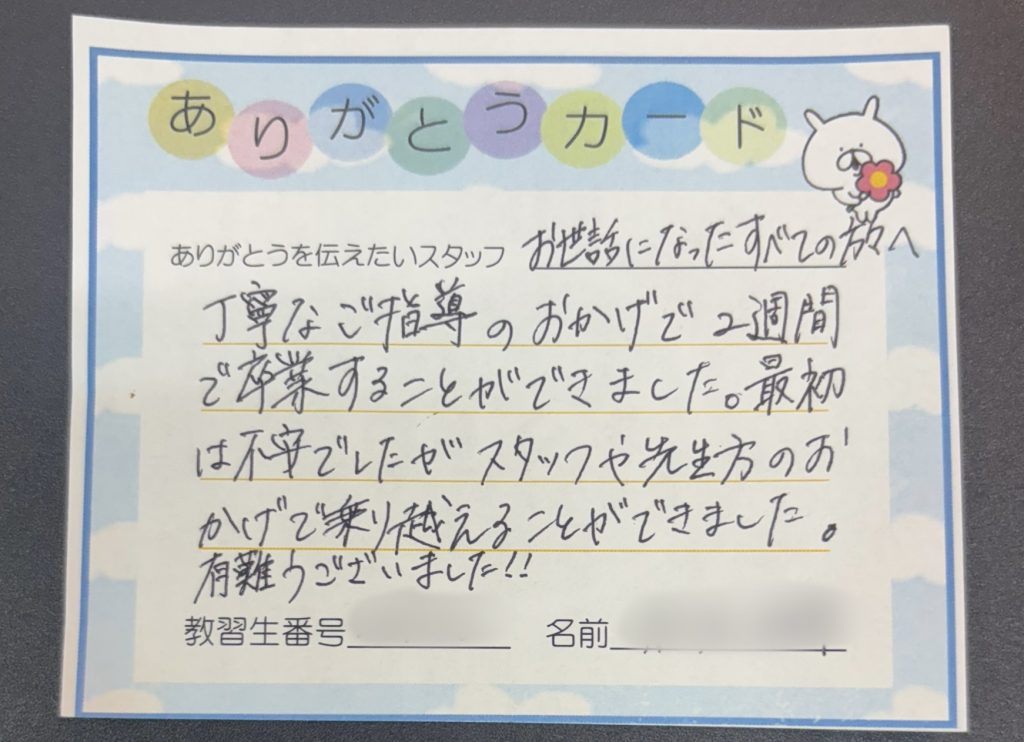 ありがとうカード
ありがとうを伝えたいスタッフ お世話になったすべての方々へ
丁寧なご指導のおかげで2週間
で卒業することができました。最初
は不安でしたがスタッフや先生方のお
かげで乗り越えることができました。
有難うございました!!
教習生番号 名前